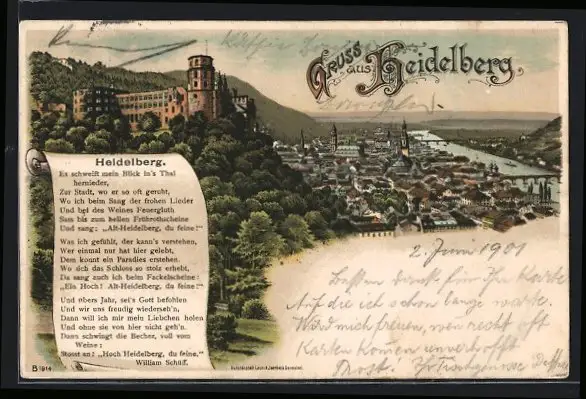 Gruss
aus
Heidelberg.
Heidelberg.
Es schweift mein Blick in's Thal
hernieder,
Zur Stadt, wo er so oft geruht,
Wo ich beim Sang der frohen Lieder
Und bei des Weines Feuergluth
Sass bis zum hellen Frührothscheine
Und sang: „Alt-Heidelberg, du feine!“
Was ich gefühlt, der kann's verstehen,
Wer einmal nur hat hier gelebt,
Dem konnt ein Paradies erstehen.
Wo sich das Schloss so stolz erhebt,
Da sang auch ich beim Fackelscheine:
„Ein Hoch! Alt-Heidelberg, du feine!“
Und übers Jahr, sei's Gott befohlen
Und wir uns freudig wiederseh'n,
Dann will ich mir mein Liebchen holen
Und ohne sie von hier nicht geh'n.
Dann schwingt die Becher, voll vom
Weine:
Stosst an: „Hoch Heidelberg, du feine.“
William Schüff.
B 1914
2. Juni 1901
Besten Dank für Ihre Karte
Auf die ich schon lange warte.
Wird mich freuen, wenn recht oft
Karten kommen unverhofft
Prost! Ihr